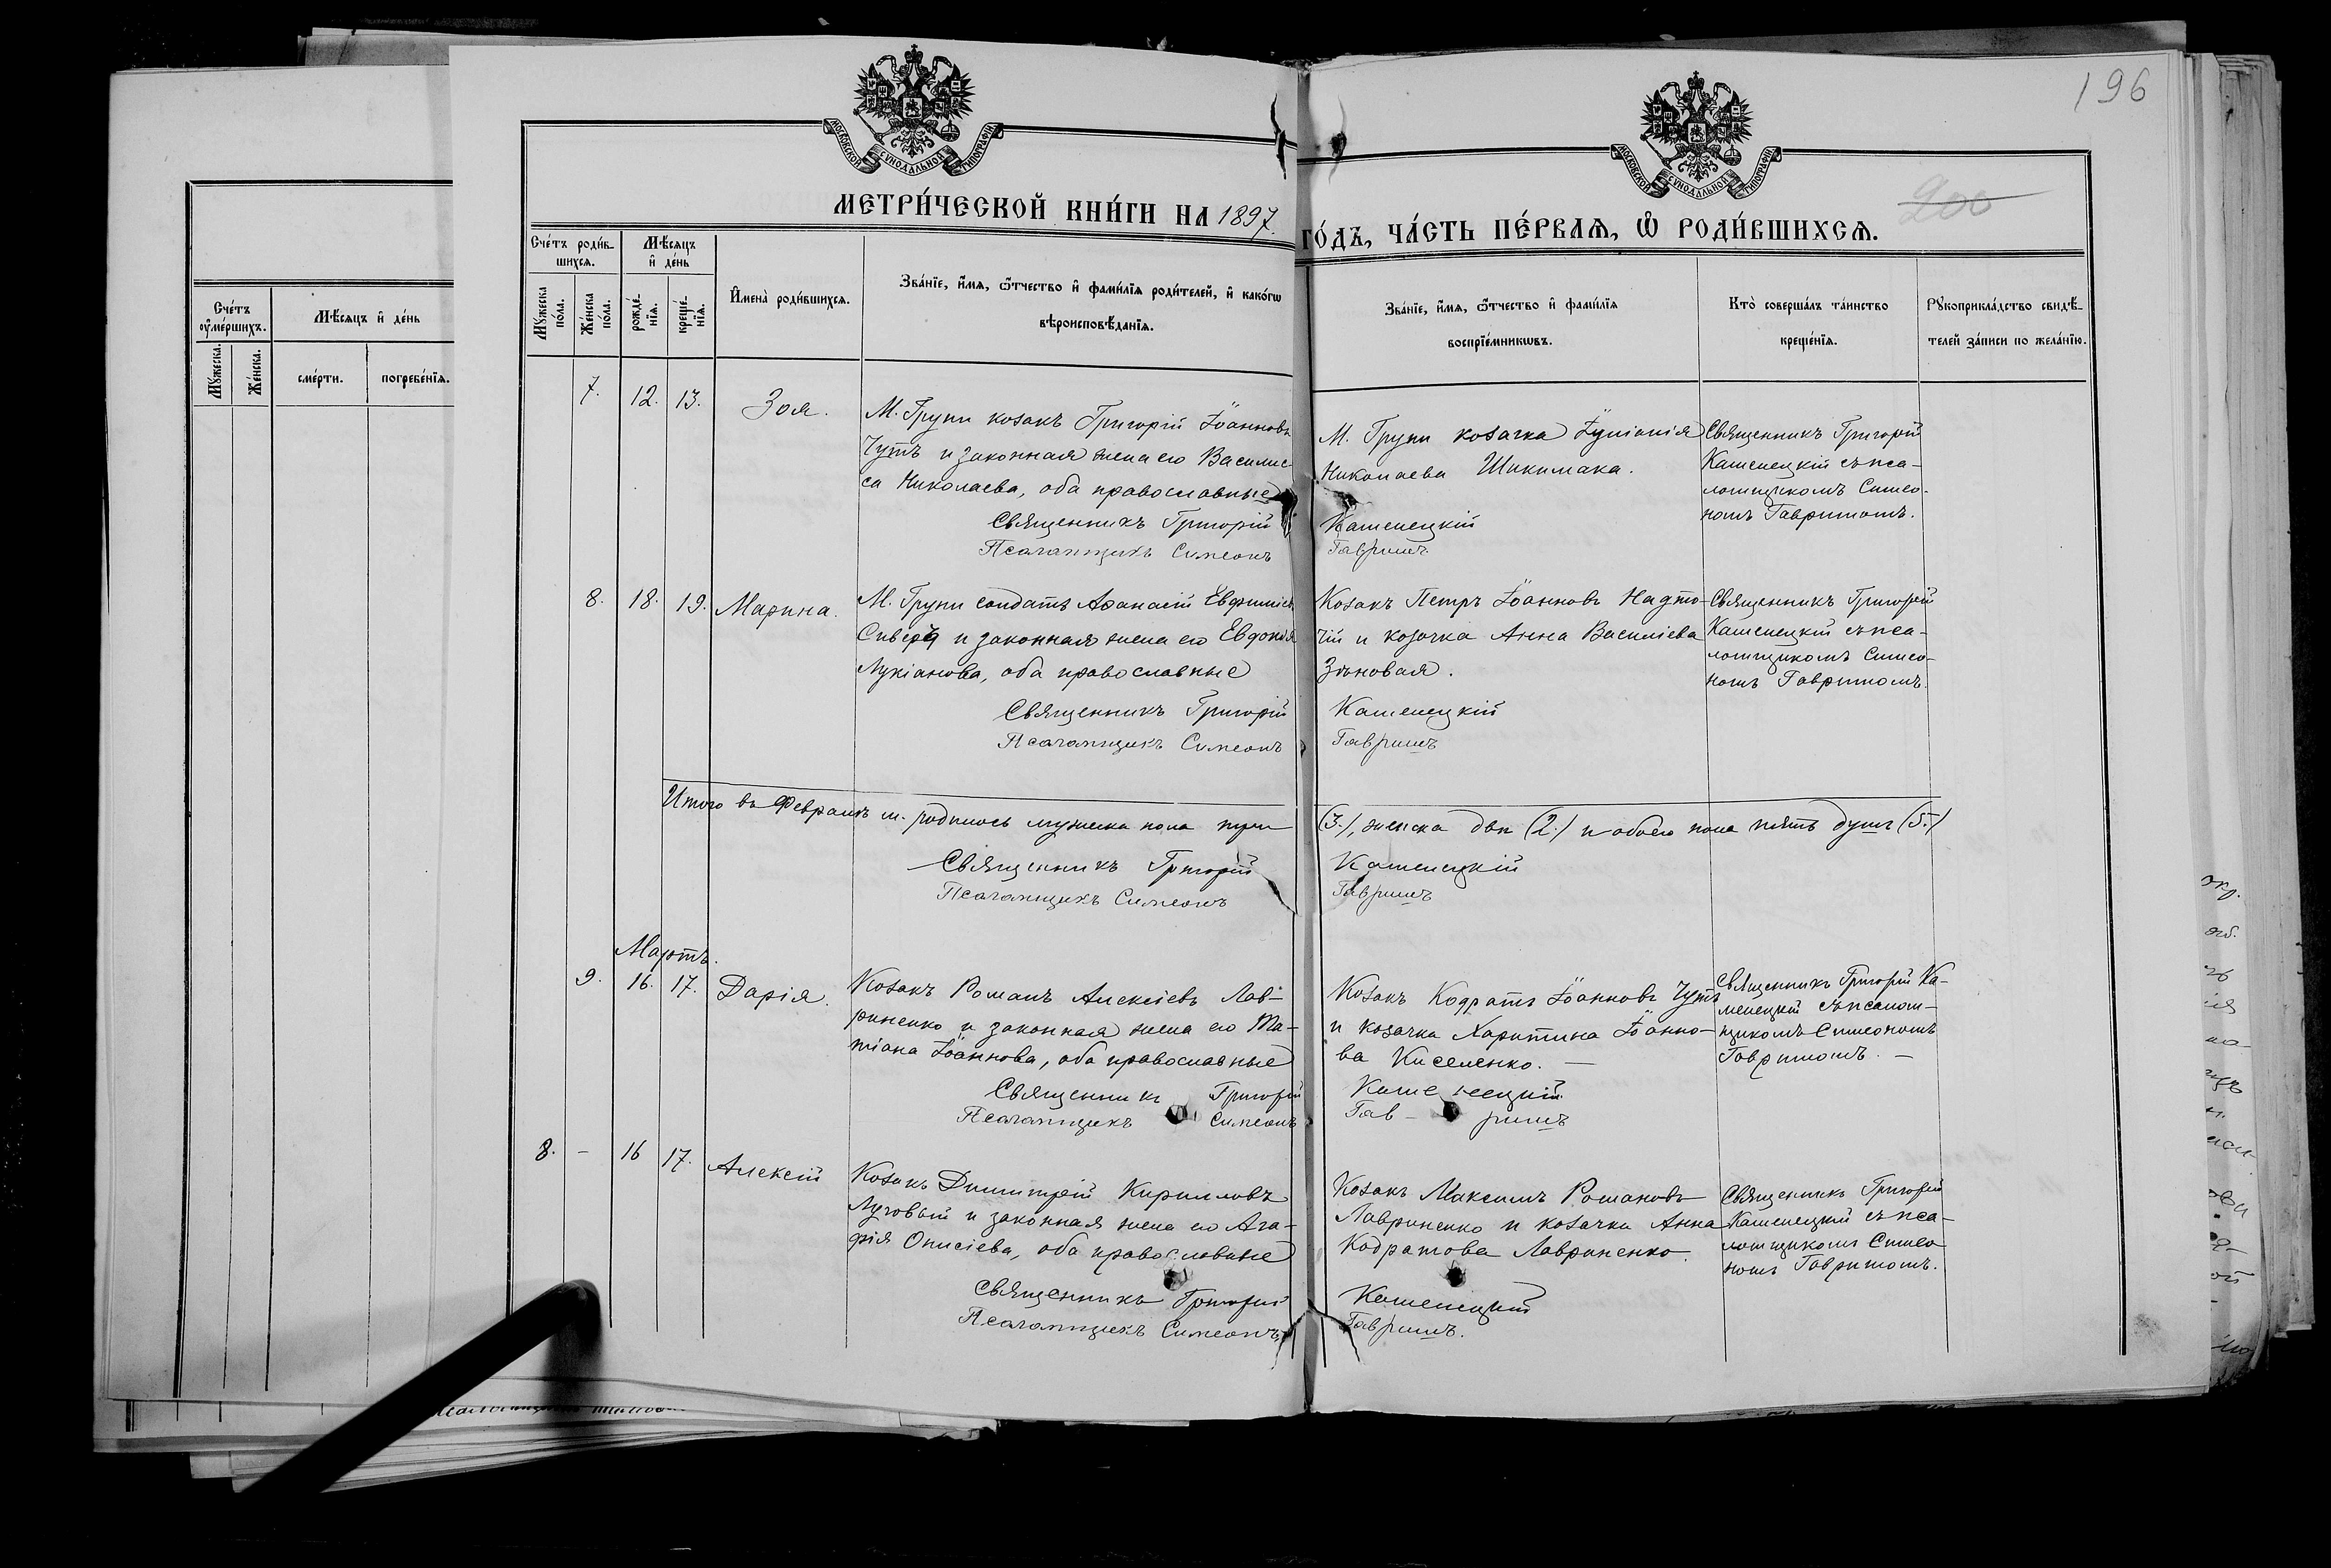 196
200
МОСКОВСКОЙ СУНОДАЛЬНОЙ ТИПОГРАФІИ
МОСКОВСКОЙ СУНОДАЛЬНОЙ ТИПОГРАФІИ
МЕТРИ́ЧЕСКОЙ КНИ́ГИ НА 1897.
ГО́ДЪ, ЧА́СТЬ ПЕ́РВАѦ, Ѡ҆ РОДИ́ВШИХСѦ.
Сче́тъ
ᲂу҆ме́ршихъ.
Мѣ́сяцъ и҆ де́нь
Мꙋ́жеска.
Же́нска.
сме́рти.
погребе́нїѧ.
Сче́тъ роди́в-
шихсѧ.
Мѣ́сяцъ
и҆ де́нь
Мꙋ́жеска по́ла.
Же́нска по́ла.
рожде́-нїѧ.
креще́-нїѧ.
И҆мена̀ роди́вшихсѧ.
Зва́нїе, и҆́мѧ, ѻ҆́тчество и҆ фами́лїѧ роди́телей, и҆ како́гѡ
вѣроисповѣ́данїѧ.
Зва́нїе, и҆́мѧ, ѻ҆́тчество и҆ фами́лїѧ
воспрїе́мникѡвъ.
Кто̀ соверша́лъ та́инство
креще́нїѧ.
Рꙋкоприкла́дство свидѣ́-
телей за́писи по жела́нїю.
7. 12. 13. Зоя.
М. Групи козакъ Григорій Іоанновъ
Чутъ и законная жена его Василис-
са Николаева, оба православные
Священникъ Григорій
Псаломщикъ Симеонъ
М. Групи козачка Іуліанія
Николаева Шикимака.
Каменецкій
Гавришъ
Священникъ Григорій
Каменецкій съ пса-
ломщикомъ Симео-
номъ Гавришомъ.
8. 18. 19. Марина.
М. Групи солдатъ Аѳанасій Евфиміевъ
и законная жена его Евдокія
Лукіанова, оба православные
Священникъ Григорій
Псаломщикъ Симеонъ
Козакъ Петръ Іоанновъ Надто-
чій и козачка Анна Василіева
Зѣновая.
Каменецкій
Гавришъ
Священникъ Григорій
Каменецкій съ пса-
ломщикомъ Симео-
номъ Гавришомъ.
Итого въ Февралѣ м. родилось мужеска пола три
(3.), женска двѣ (2.) и обоего пола пять душъ (5.)
Священникъ Григорій
Псаломщикъ Симеонъ
Каменецкій
Гавришъ
Мартъ.
9. 16. 17. Дарія.
Козакъ Романъ Алексіевъ Лав-
риненко и законная жена его Та-
тіана Іоаннова, оба православные
Священникъ Григорій
Псаломщикъ Симеонъ
Козакъ Кодратъ Іоанновъ Чутъ
и козачка Харитина Іоанно-
ва Киселенко. —
Каменецкій
Гав- ришъ
Священникъ Григорій Ка-
менецкій съ псалом-
щикомъ Симеономъ
Гавришомъ. —
8. - 16 17. Алексій
Козакъ Димитрій Кирилловъ
Луговый и законная жена его Ага-
фія Онисіева, оба православные
Священникъ Григорій
Псаломщикъ Симеонъ
Козакъ Максимъ Романовъ
Лавриненко и козачка Анна
Кодратова Лавриненко.
Каменецкій
Гавришъ.
Священникъ Григорій
Каменецкій съ пса-
ломщикомъ Симео-
номъ Гавришомъ.